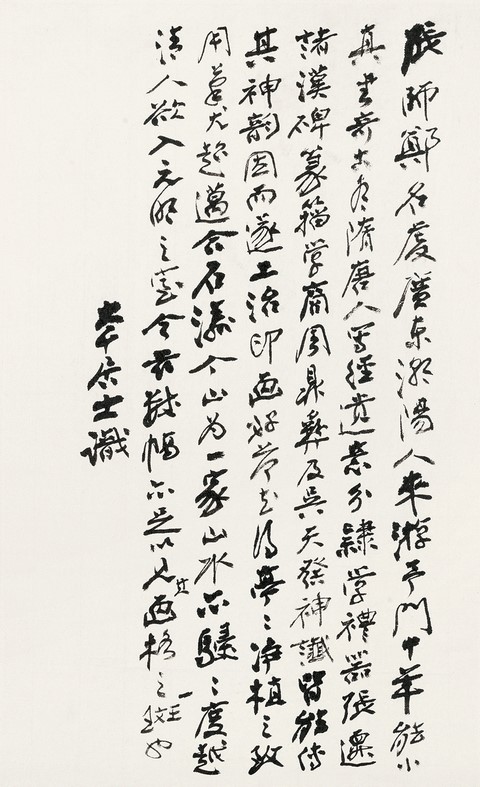 張師鄭名虔廣東潮陽人來游予門十年能小
真書奇古有隋唐人寫經遺意分隸學禮器張遷
諸漢碑篆籀學商周鼎彝及吳天發神讖皆能傳
其神韻因而遂工治印画好荷花得亭〻淨植之致
用筆尤超邁合石濤个山為一家山水亦駸〻度越
清人欲入元明之室今幅亦足以見其画格之一斑也
大千居士識